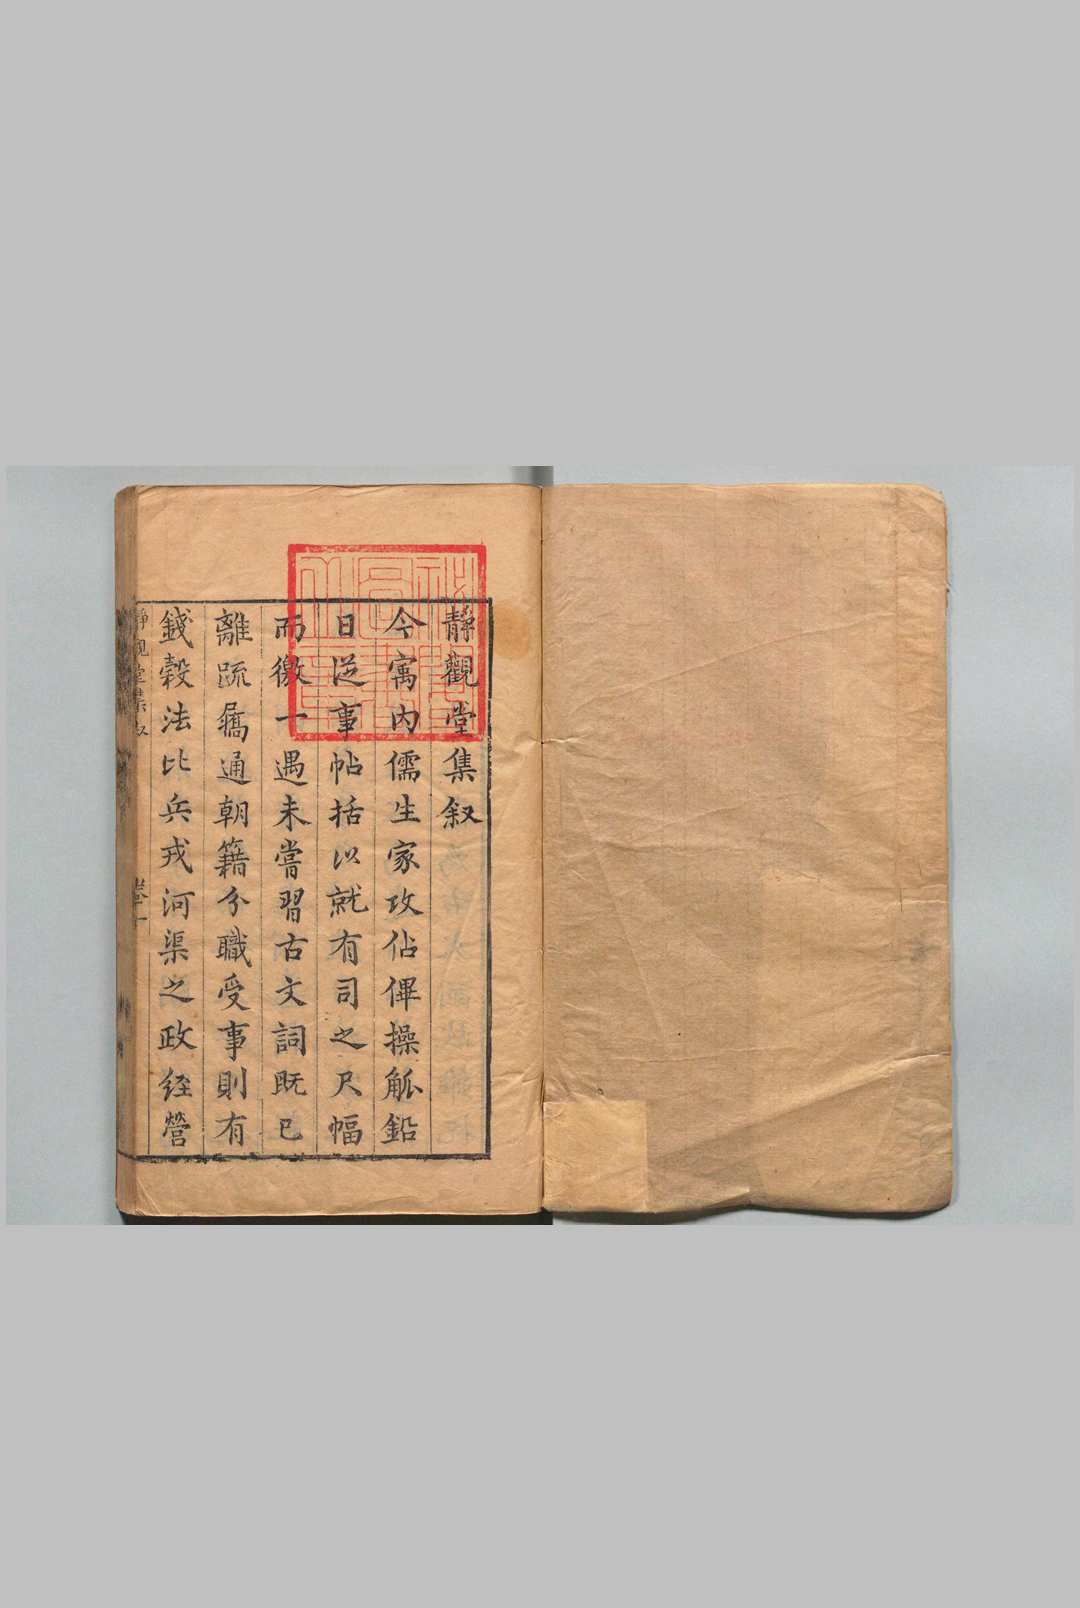 靜觀堂集叙
今寓内儒生家攻佔俾操觚鉛
日從事帖括以就有司之尺幅
而徼一遇未嘗習古文詞既已
離疏屩通朝籍分職受事則有
錢穀法比兵戎河渠之政經營
靜觀堂集叙